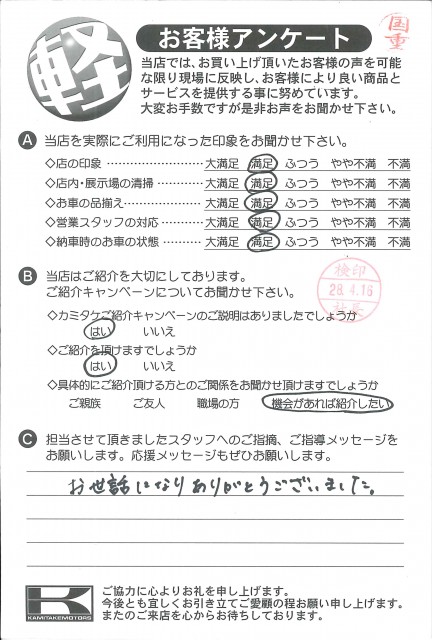 軽
お客様アンケート
国重
当店では、お買い上げ頂いたお客様の声を可能
な限り現場に反映し、お客様により良い商品と
サービスを提供する事に努めています。
大変お手数ですが是非お声をお聞かせ下さい。
A 当店を実際にご利用になった印象をお聞かせ下さい。
◇店の印象 ………………… 大満足 満足 ふつう やや不満 不満
◇店内・展示場の清掃……… 大満足 満足 ふつう やや不満 不満
◇お車の品揃え……………… 大満足 満足 ふつう やや不満 不満
◇営業スタッフの対応……… 大満足 満足 ふつう やや不満 不満
◇納車時のお車の状態……… 大満足 満足 ふつう やや不満 不満
B 当店はご紹介を大切にしております。
ご紹介キャンペーンについてお聞かせ下さい。
検印
28.4.16
社長
◇カミタケご紹介キャンペーンのご説明はありましたでしょうか
はい いいえ
◇ご紹介を頂けますでしょうか
はい いいえ
◇具体的にご紹介頂ける方とのご関係をお聞かせ頂けますでしょうか
ご親族 ご友人 職場の方 機会があれば紹介したい
C 担当させて頂きましたスタッフへのご指摘、ご指導メッセージを
お願いします。応援メッセージもぜひお願いします。
お世話になりありがとうございました。
K
KAMITAKEMOTORS
ご協力に心よりお礼を申し上げます。
今後とも宜しくお引き立てご愛顧の程お願い申し上げます。
またのご来店を心からお待ちしております。